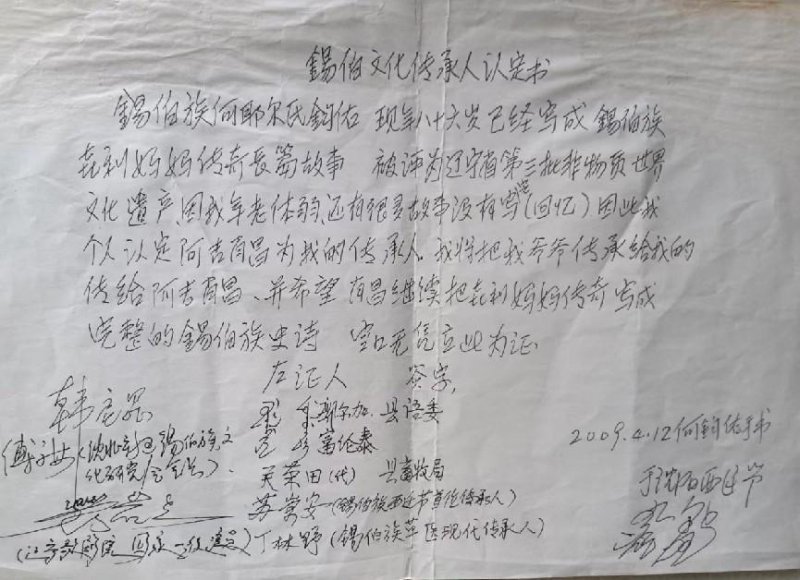 錫伯文化传承人认定书
錫伯族何耶尔氏鈞佑 现年八十六岁已经写成 錫伯族
喜利妈妈传奇长篇故事 被评为辽宁省第三批非物质世界
文化遗产、因我年老体弱、还有很多故事没有写(回忆)因此我
个人认定阿吉肖昌为我的传承人、我将把我爷爷传承给我的
传给阿吉肖昌、并希望 肖昌继续把喜利妈妈传奇写成
完整的錫伯族史诗 空口无凭立此为证
左证人 签字
斯尔加 县语委
富伦泰
关荣田(代) 县畜牧局
苏崇安(锡伯族西迁节首任传承人)
丁林野(锡伯族萃医现代传承人)
(沈北新区锡伯族文
化研究会会长)
2009.4.12何鈞佑手书
于沈阳西迁节